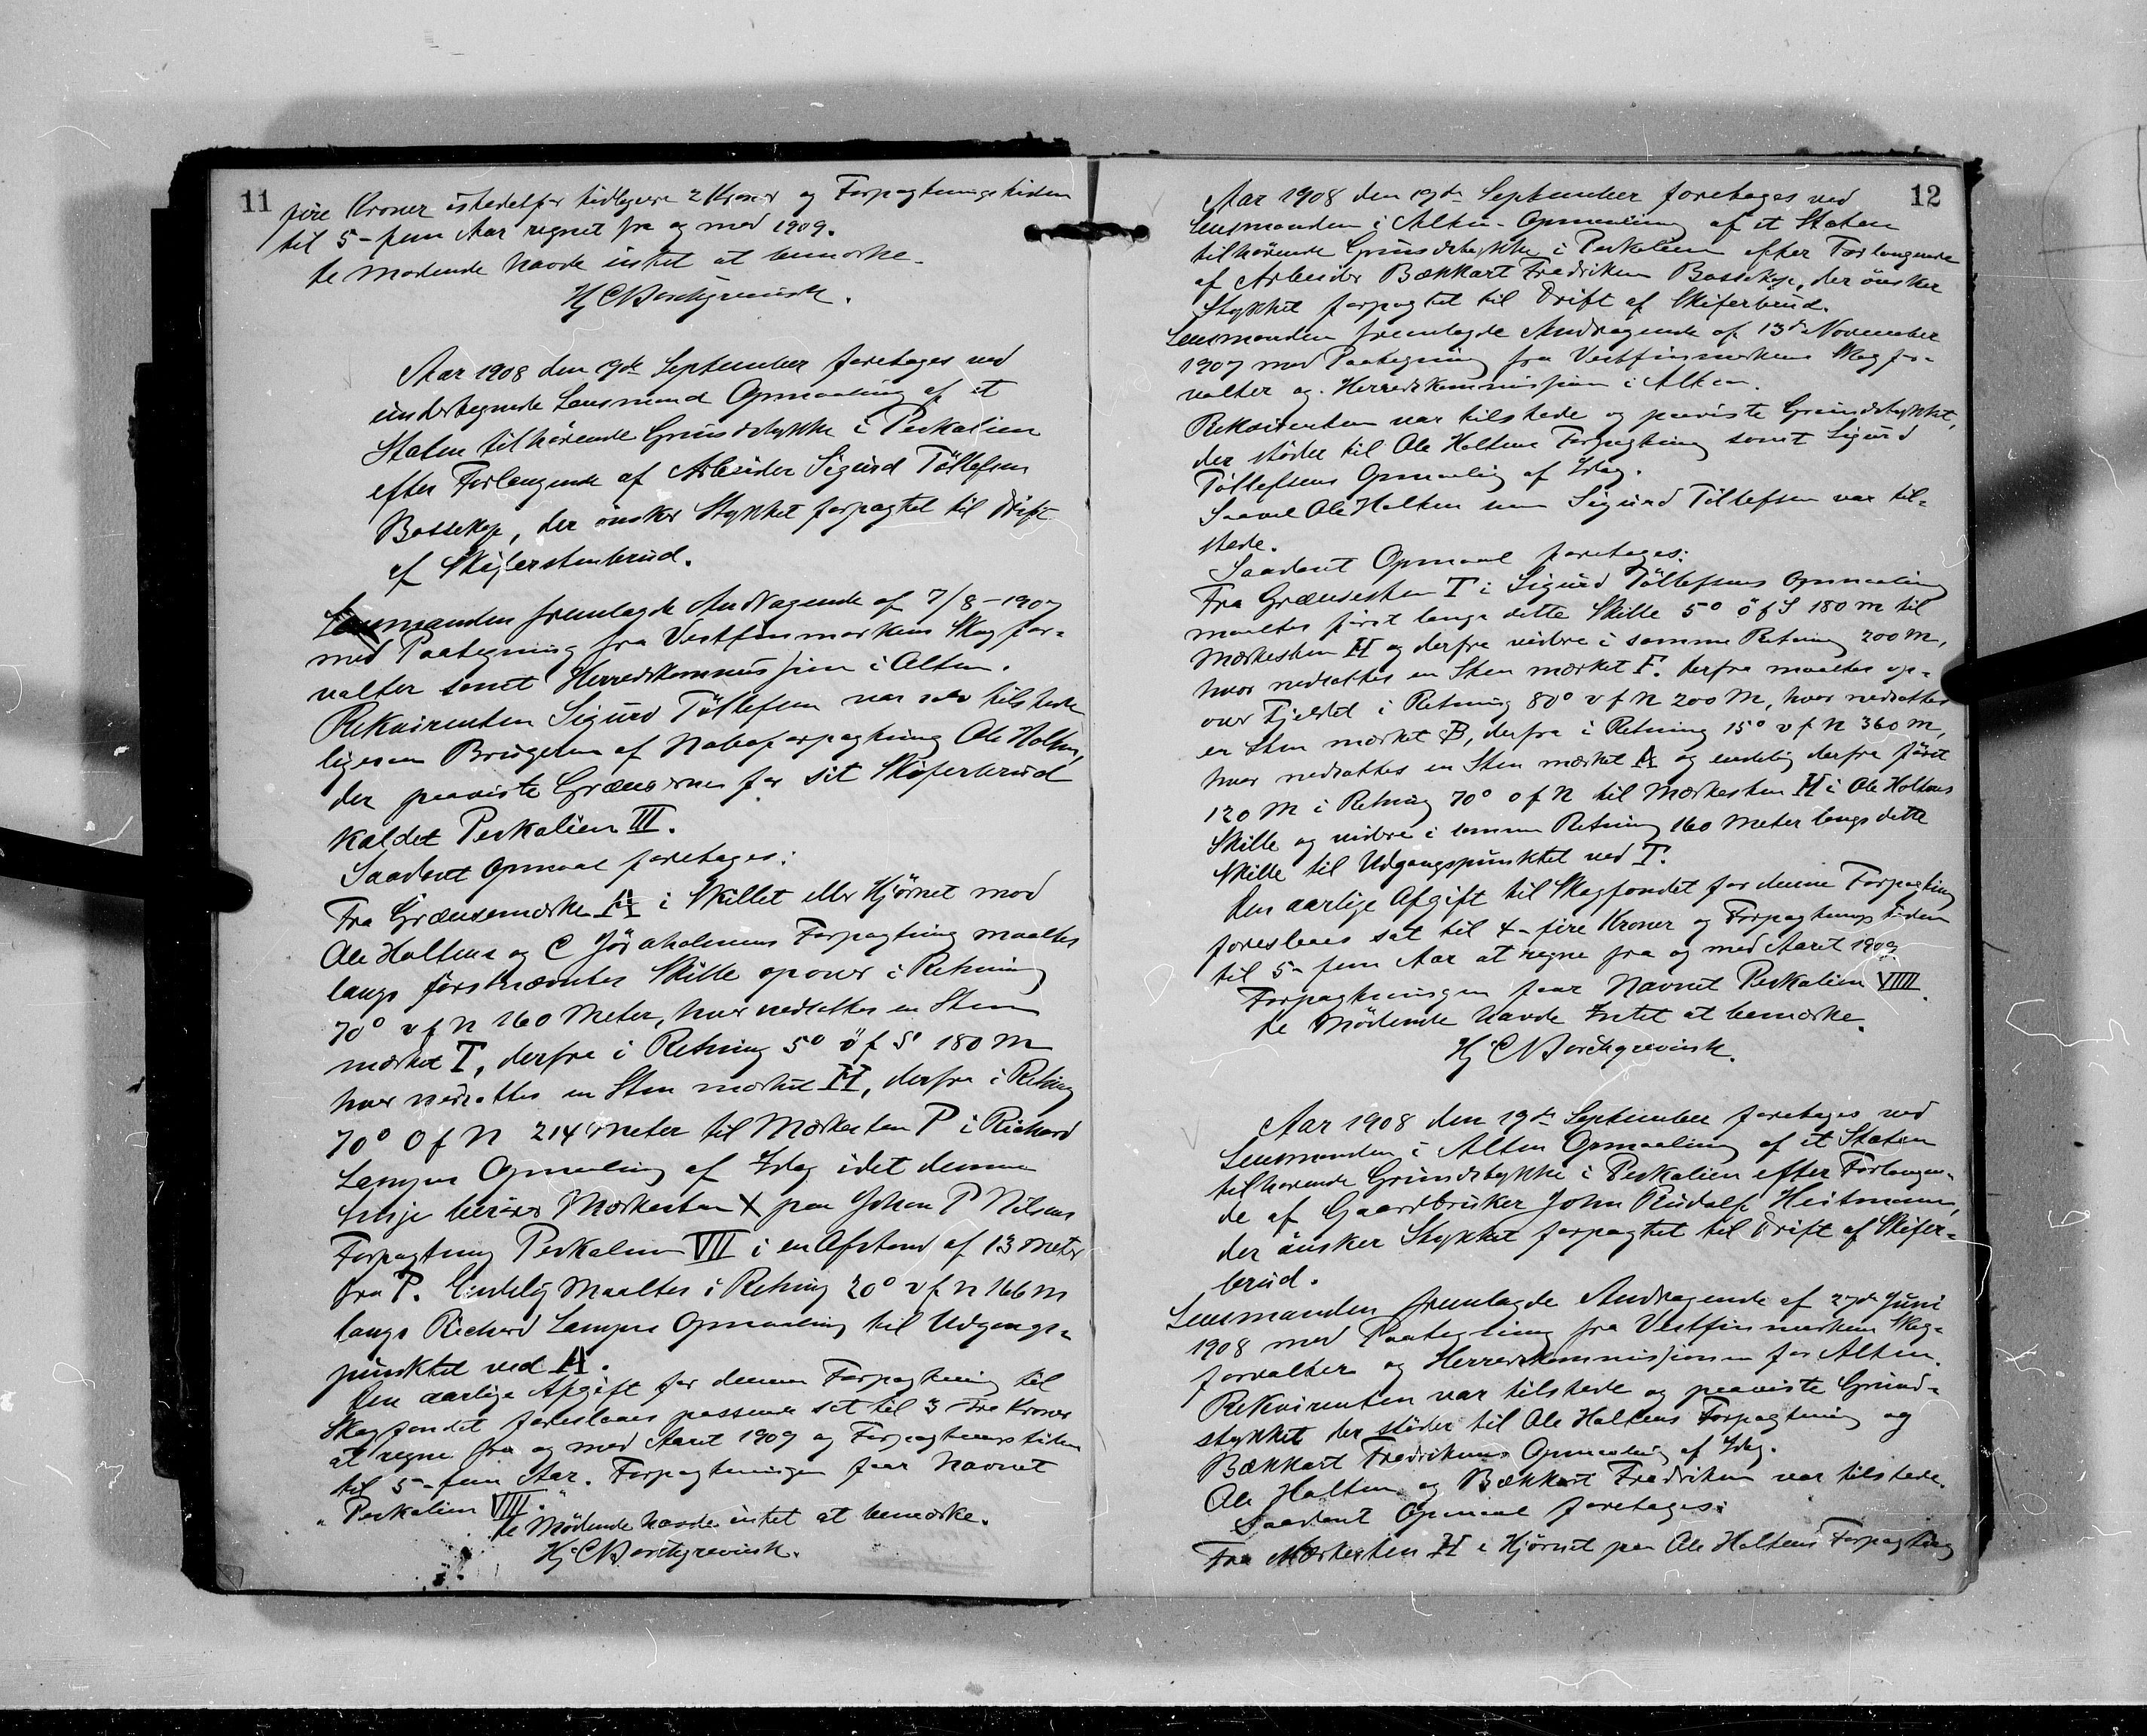 11
fire Kroner istedetfor tidligere 2 Kroner og Forpagtningstiden
til 5-fem Aar regnet fra og med 1909.
De Mødende havde intet at bemærke.
Hj C Borchgrevink.
Aar 1908 den 19de September foretages ved
undertegnede Lensmand Opmaaling af et
Staten tilhørende Grundstykke i Peskalien
efter Forlangende af Arbeider Sigurd Töllefsen
Bossekop, der ønsker Stykket forpagtet til Drift
af Skiferstenbrud.
Lensmanden fremlagde Andragende af 7/8-1907
med Paategning fra Vestfinmarkens Skogfor-
valter samt Herredskommissjon i Alten.
Rekvirenten Sigurd Töllefsen var selv tilstede
ligesom Brugeren af Naboforpagtning Ole Holten,
der paaviste Grænserne for sit Skiferbrud
kaldet Peskalien III.
Saadant Opmaal foretages:
Fra Grænsemærke A i Skillet eller Hjørnet mod
Ole Holtens og C Forpagtning maaltes
langs førstnævntes Skille opover i Retning
70° v f N 160 Meter, hvor nedsattes en Sten
mærket I, derfra i Retning 5° ö f S 180 M
hvor nedsattes en Sten mærket H, derfra i Retning
70° O f N 214 Meter til Mærkesten P i Richard
Lampes Opmaaling af Idag idet denne
Linje berører Mærkesten X paa Johan P Nilsens
Forpagtning Peskalien VII i en Afstand af 13 Meter
fra P. Endelig Maaltes i Retning 20° v f N 166 M
langs Richard Lampes Opmaaling til Udgangs-
punktet ved A.
Den aarlige Afgift for denne Forpagtning til
Skogfondet foreslaaes passende sat til 3 tre Kroner
at regne fra og med Aaret 1909 og Forpagtningstiden
til 5-fem Aar. Forpagtningen faar Navnet
"Peskalien VIII."
De Mødende havde intet at bemærke.
Hj C Borchgrevink.
12
Aar 1908 den 19de September foretages ved
Lensmanden i Alten Opmaaling af et Staten
tilhörende Grundstykke i Peskalien efter Forlangende
af Arbeider Bækkart Fredriksen Bossekop, der önsker
Stykket forpagtet til Drift af Skiferbrud.
Lensmanden fremlagde Andragende af 13de November
1907 med Paategning fra Vestfinmarkens Skogfor-
valter og Herredskommissjon i Alten.
Rekvirenten var tilstede og paaviste Grundstykket,
der støder til Ole Holtens Forpagtning samt Sigurd
Töllefsens Opmaaling af Idag.
Saavel Ole Holten som Sigurd Töllefsen var til-
stede.
Saadant Opmaal foretages:
Fra Grænsesten I i Sigurd Töllefsens Opmaaling
maaltes først langs dette Skille 5° ö f S 180 m til
Mærkesten H og derfra videre i samme Retning 200 M,
hvor nedsattes en Sten mærket F. derfra maaltes op-
over Fjeldet i Retning 80° v f N 200 M, hvor nedsattes
en Sten mærket B, derfra i Retning 15° v f N 360 M,
hvor nedsattes en Sten mærket A og endelig derfra først
120 M i Retning 70° o f N til Mærkesten H i Ole Holtens
Skille og videre i samme Retning 160 Meter langs dette
Skille til Udgangspunktet ved I.
Den aarlige Afgift til Skogfondet for denne Forpagtning
foreslaaes sat til 4-fire Kroner og Forpagtningstiden
til 5-fem Aar at regne fra og med Aaret 1909
Forpagtningen faar Navnet Peskalien VIIII.
De Mødende havde Intet at bemærke.
Hj C Borchgrevink.
Aar 1908 den 19de September foretages ved
Lensmanden i Alten Opmaaling af et Staten
tilhørende Grundstykke i Peskalien efter Forlangen-
de af Gaardbruker John Rudolf Heitmann,
der ønsker Stykket forpagtet til Drift af Skifer-
brud.
Lensmanden fremlagde Andragende af 27de Juni
1908 med Paategning fra Vestfinmarkens Skog-
forvalter og Herredskommissjonen for Alten.
Rekvirenten var tilstede og paaviste Grund-
stykket der støder til Ole Holtens Forpagtning og
Bækkart Fredriksens Opmaaling af Idag.
Ole Holten og Bækkart Fredriksen var tilstede.
Saadant Opmaal foretages:
Fra Mærkesten H i Hjørnet paa Ole Holtens Forpagtning